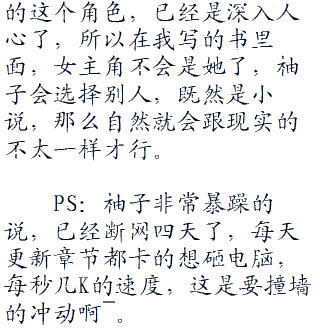 的这个角色，已经是深入人
心了，所以在我写的书里
面，女主角不会是她了，柚
子会选择别人，既然是小
说，那么自然就会跟现实的
不太一样才行。
PS：柚子非常暴躁的
说，已经断网四天了，每天
更新章节都卡的想砸电脑，
每秒几K的速度，这是要撞墙
的冲动啊¯。